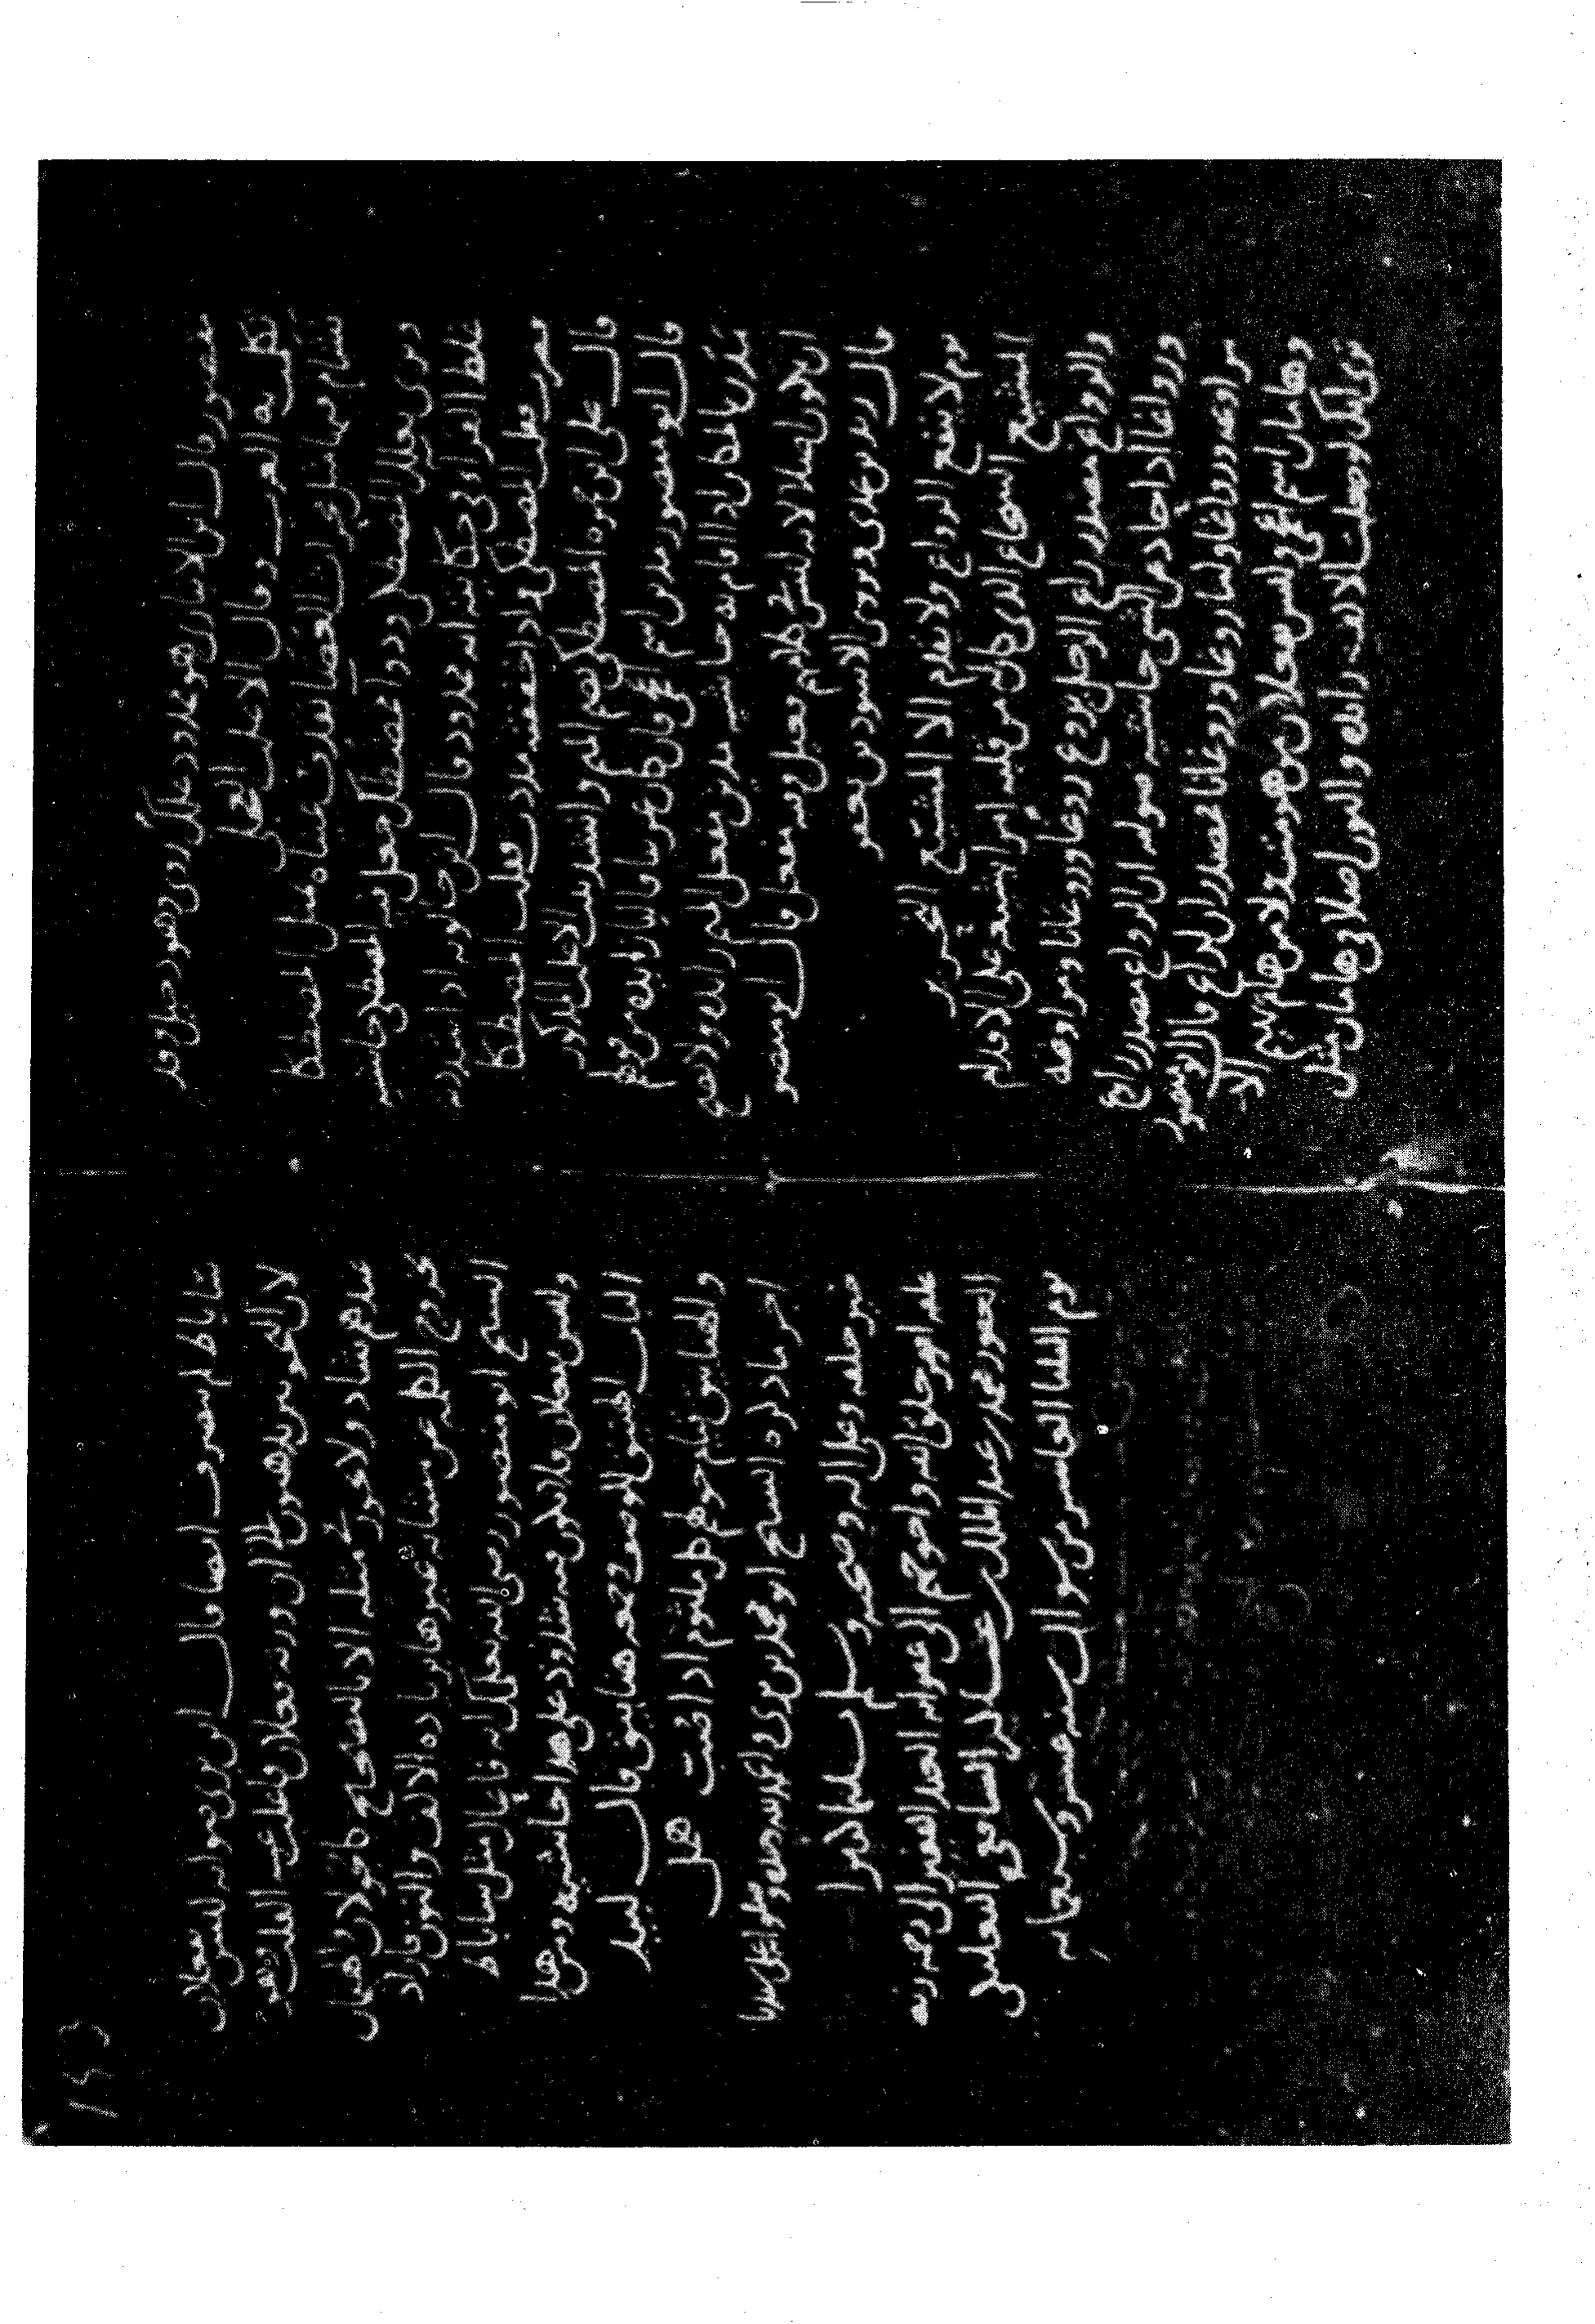 منصور قال ابن الانباري هو ممدود علك رومي وهو دخيل وقد
تكلمت به العرب وقال الاغلب العجلي
فيها مثل محراث الغضا تقذف عيناه بمثل المصطكا
بعلك المصطكى ودوا ممصطك جعل فيه المصطكى حاشيه
غلط الفرا في حكايته انه ممدود وقال ابن خالويه اذا شددت
قصرت فقلت المصطكى واذا خففته مددت فقلت المصطكا
قال علي ابن حمزه المصطكى بضم الميم وانشد بيت الاغلب المذكور
قال ابو منصور مدين اسم اعجمي فان كان عربيا فاليا زايده من قولهم
مدن بالمكان اذا اقام به حاشيه مدين مفعل الميم زايده ولا يصح
ان يكون فعيلا لانه ليس في كلامهم فعيل وفيه مفعل قال ابو منصور
قال زيد بن عدي ويروى للاسود بن يعفر
يوم لا ينفع الرواغ ولا يقدم الا المشيع النحرير
المشيع الشجاع الذي كان من قلبه امرا يشيعه على الاقدام
والرواغ مصدر راغ الرجل يروغ روغا وروغانا ومراوغه
ورواغا اذا حاد عن الشي حاشيه صوابه ان الرواغ مصدر راوغ
مراوغه ورواغا روغا وروغانا مصدران لراغ قال ابو منصور
وهامان اسم اعجمي وليس بفعلان من هومت ولا من هام يهيم الا
ترى انك لو جعلت الالف زايده والنون اصلا في هامان مثل
ساباط لم يصرف ايضا قال ابن بري صوابه ليس بفعلان
لان النحويين يذهبون الى ان وزنه فعلان وهو
عندهم شاذ ولا يجوز في مثله الا بالتصحيح كالجولان والهيمان
بخروج الكلمه عن مشابه غيرها بزياده الالف والنون فاراد
الشيخ ابو منصور رضي الله بذلك انه فاعال مثل ساباط
وليس بفعلان فلا يكون فيه شذوذ على هذا حاشيه ومن هذا
الباب الهبنيق الوصيف وجمعه هبانيق قال لبيد
والهبانيق قيام حولهم كل ملثوم اذا صب همل
اخر ما ذكره الشيخ ابو محمد بن بري والحمد لله وحده وصلواته على سيدنا
خير خلقه وعلى اله وصحبه وسلم تسليما كثيرا
علقه افقر خلق الله واحوجهم الى عفوه العبد الفقير الى رحمه ربه
الغفور محمد بن عبد الملك عساكر الشافعي
يوم الثلثا العاشر من شوال سنه عشر وسبعمايه